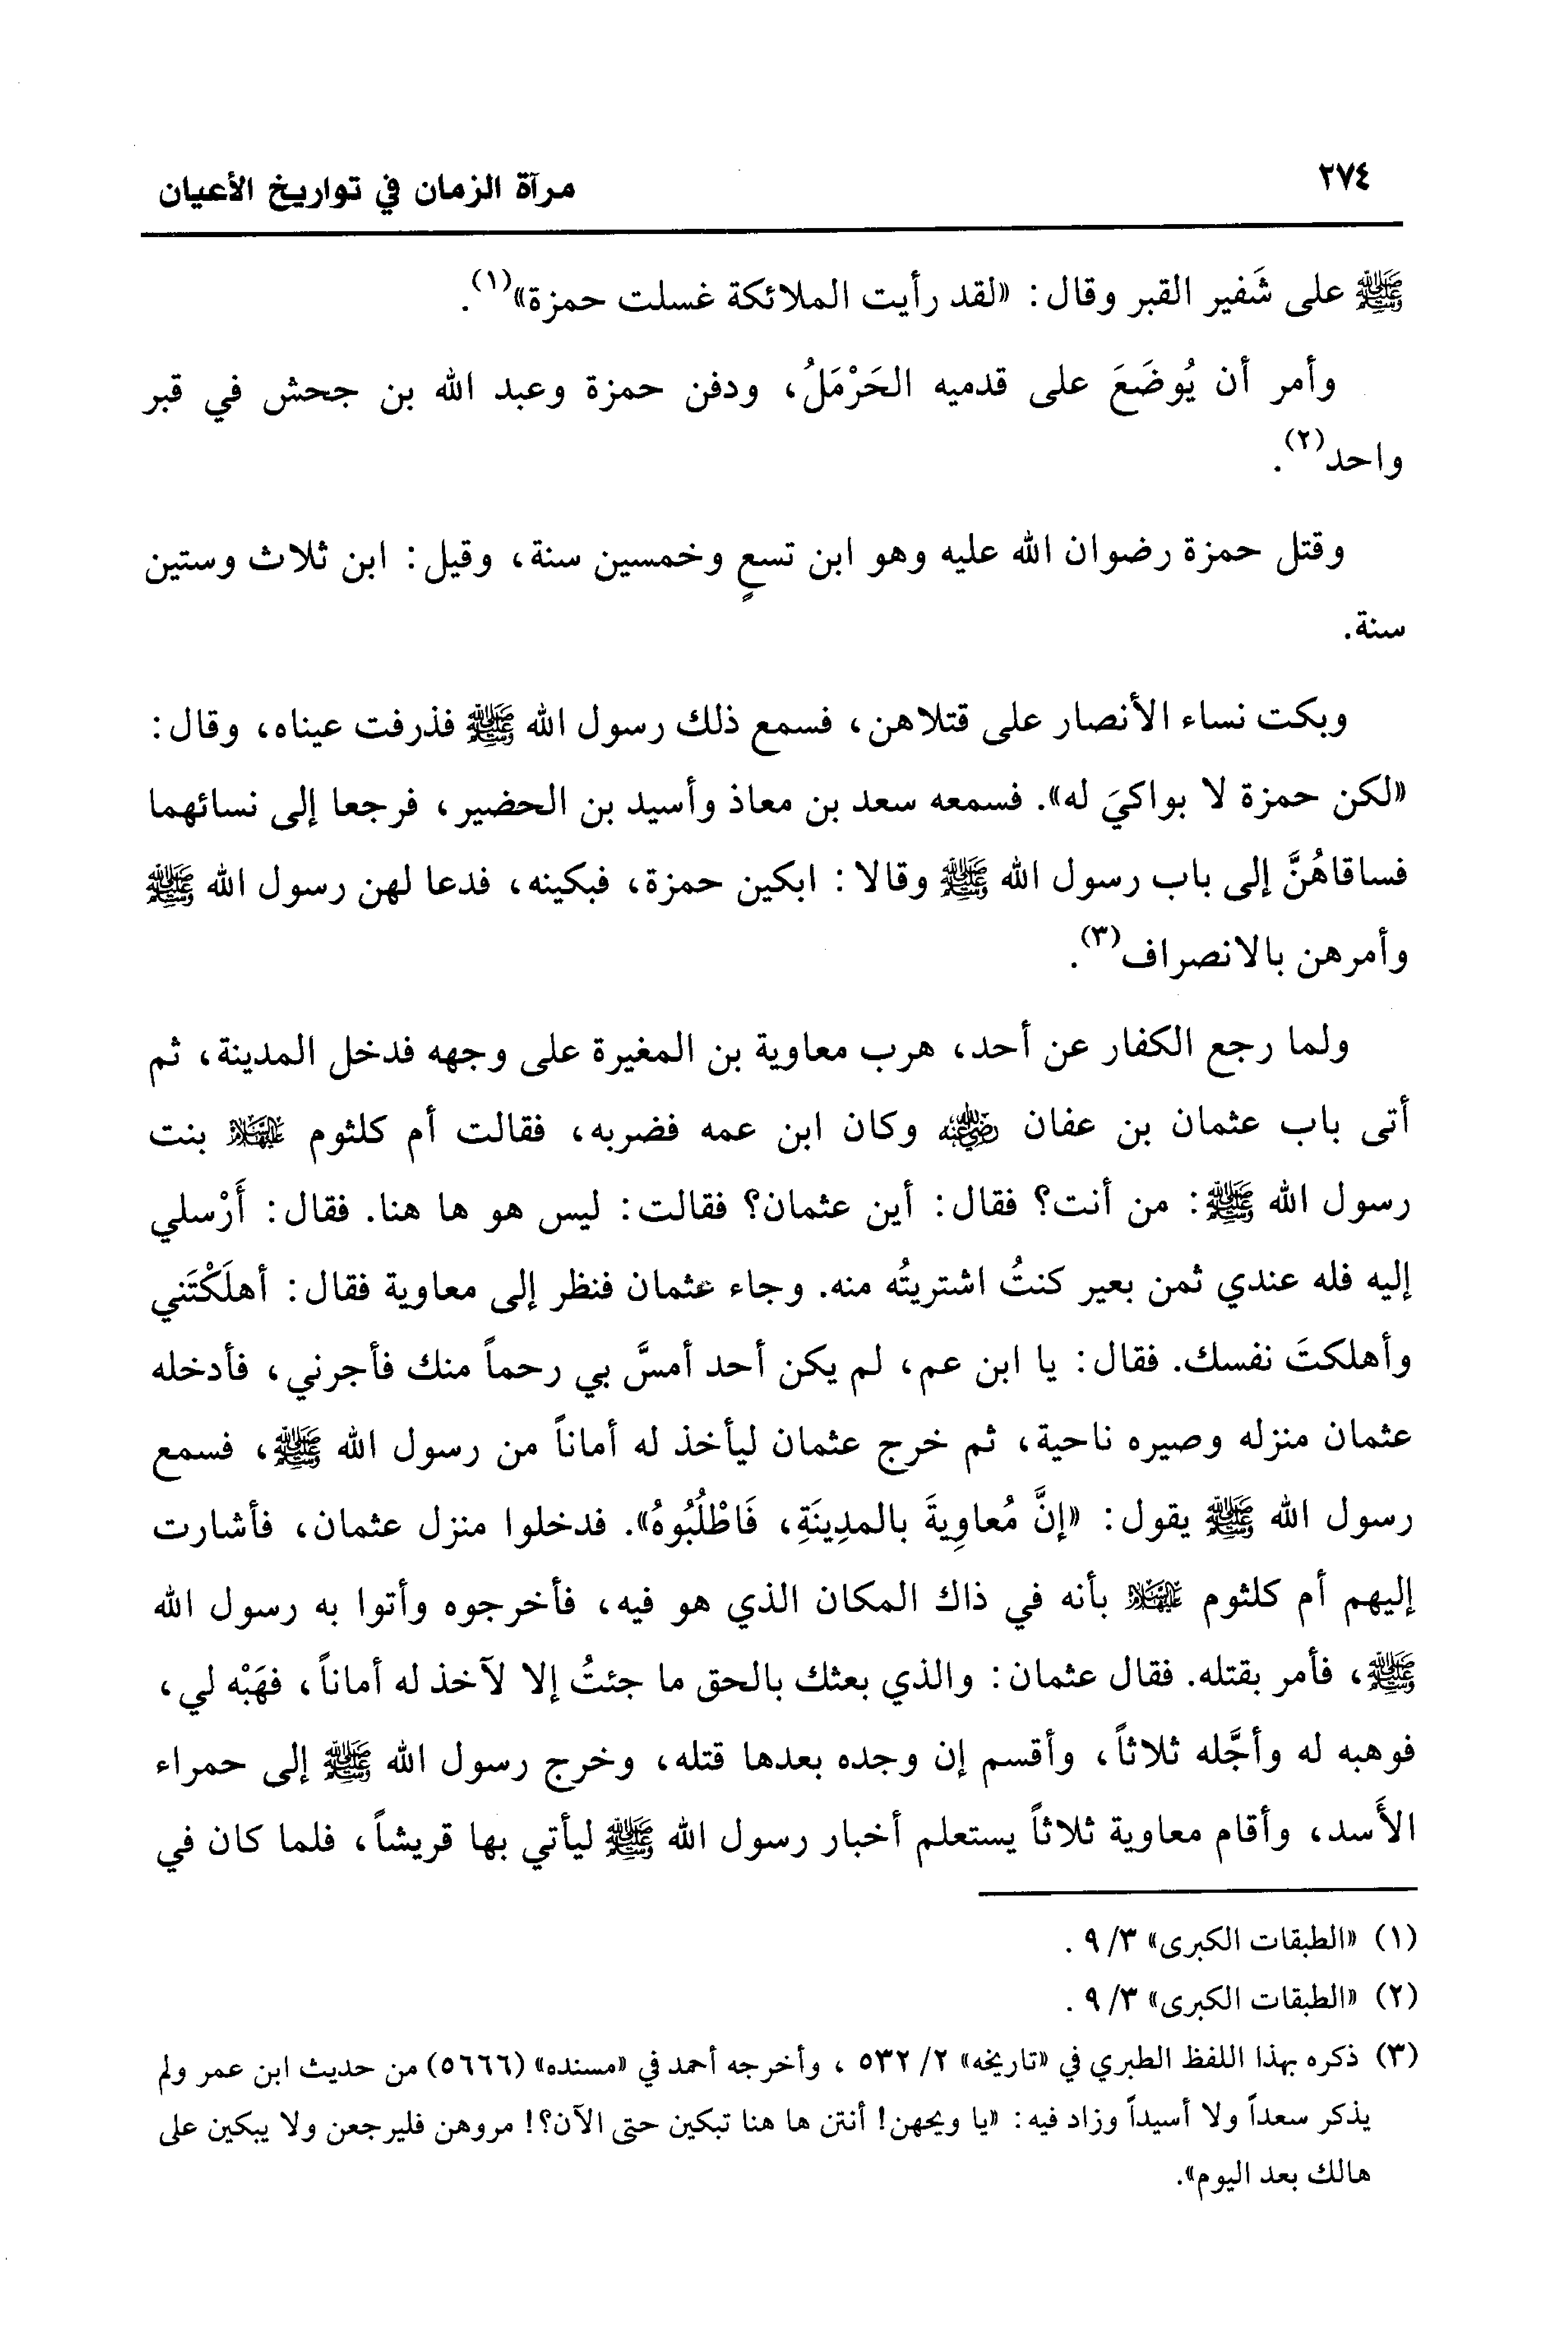 ٢٧٤
مرآة الزمان في تواريخ الأعيان
ﷺ على شَفير القبر وقال: «لقد رأيت الملائكة غسلت حمزة»(١).
وأمر أن يُوضَعَ على قدميه الحَرْمَلُ، ودفن حمزة وعبد الله بن جحش في قبر
واحد(٢).
وقتل حمزة رضوان الله عليه وهو ابن تسعٍ وخمسين سنة، وقيل: ابن ثلاث وستين
سنة.
وبكت نساء الأنصار على قتلاهن، فسمع ذلك رسول الله ﷺ فذرفت عيناه، وقال:
«لكن حمزة لا بواكيَ له». فسمعه سعد بن معاذ وأسيد بن الحضير، فرجعا إلى نسائهما
فساقاهُنَّ إلى باب رسول الله ﷺ وقالا: ابكين حمزة، فبكينه، فدعا لهن رسول الله ﷺ
وأمرهن بالانصراف(٣).
ولما رجع الكفار عن أحد، هرب معاوية بن المغيرة على وجهه فدخل المدينة، ثم
أتى باب عثمان بن عفان رضي الله عنه وكان ابن عمه فضربه، فقالت أم كلثوم عليها السلام بنت
رسول الله ﷺ: من أنت؟ فقال: أين عثمان؟ فقالت: ليس هو ها هنا. فقال: أَرْسلي
إليه فله عندي ثمن بعير كنتُ اشتريتُه منه. وجاء عثمان فنظر إلى معاوية فقال: أهلَكْتَني
وأهلكتَ نفسك. فقال: يا ابن عم، لم يكن أحد أمسَّ بي رحماً منك فأجرني، فأدخله
عثمان منزله وصيره ناحية، ثم خرج عثمان ليأخذ له أماناً من رسول الله ﷺ، فسمع
رسول الله ﷺ يقول: «إنَّ مُعاوِيةَ بالمدِينَةِ، فَاطْلُبُوهُ». فدخلوا منزل عثمان، فأشارت
إليهم أم كلثوم عليها السلام بأنه في ذاك المكان الذي هو فيه، فأخرجوه وأتوا به رسول الله
ﷺ، فأمر بقتله. فقال عثمان: والذي بعثك بالحق ما جئتُ إلا لآخذ له أماناً، فهَبْه لي،
فوهبه له وأجَّله ثلاثاً، وأقسم إن وجده بعدها قتله، وخرج رسول الله ﷺ إلى حمراء
الأَسد، وأقام معاوية ثلاثاً يستعلم أخبار رسول الله ﷺ ليأتي بها قريشاً، فلما كان في
(١) «الطبقات الكبرى» ٣/ ٩ .
(٢) «الطبقات الكبرى» ٣/ ٩ .
(٣) ذكره بهذا اللفظ الطبري في «تاريخه» ٢/ ٥٣٢ ، وأخرجه أحمد في «مسنده» (٥٦٦٦) من حديث ابن عمر ولم
يذكر سعداً ولا أسيداً وزاد فيه: «يا ويحهن! أنتن ها هنا تبكين حتى الآن؟! مروهن فليرجعن ولا يبكين على
هالك بعد اليوم».